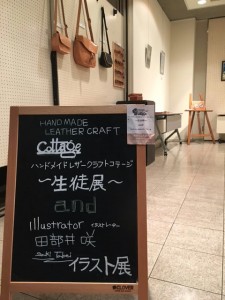 HANDMADE
LEATHER CRAFT
Cottage
ハンドメイドレザークラフトコテージ
〜生徒展〜
and
Illustrator イラストレーター
田部井 咲
Saki Tabei
イラスト展
CLOVER